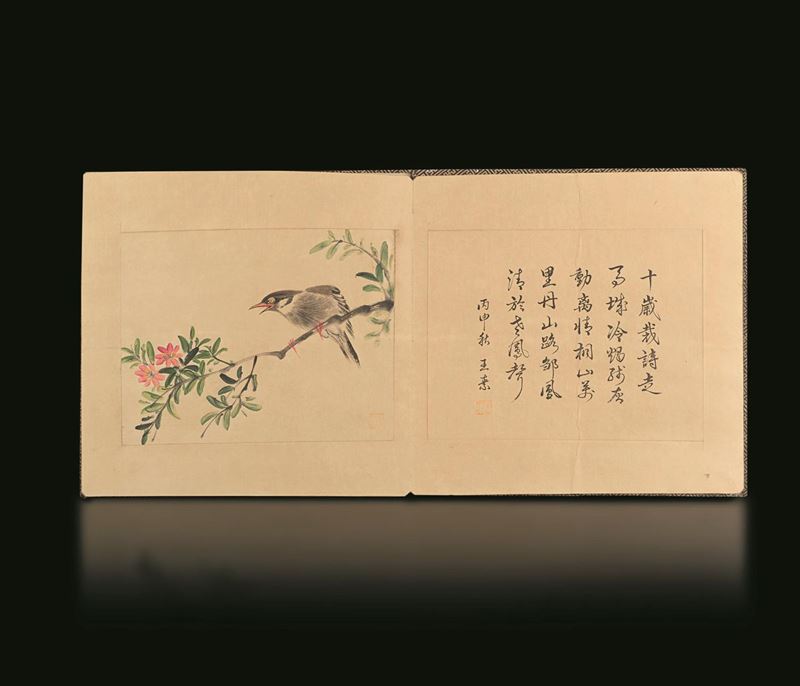 十歲裁詩走
馬城冷燭殘灰
動离情桐山萬
里丹山路鄒鳳
清於老鳳聲
丙申秋 王素